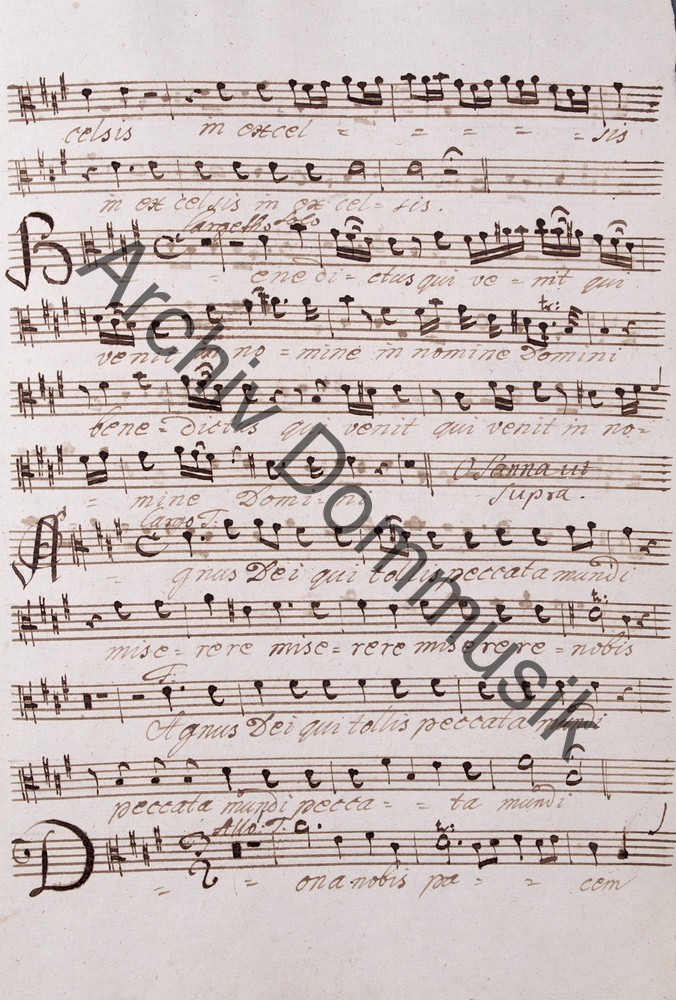 celsis in excel = = = = = sis
in ex celsis in ex cel = sis.
Larghetto Solo
B = enedi = ctus qui ve = nit qui
venit in no = mine in nomine Domini
bene = dictus qui venit qui venit in no =
= mine Domi = ni Osanna ut
supra.
Largo T.
A = gnus Dei qui tollis peccata mundi
mise = rere mise = rere miserere = nobis
T.
Agnus Dei qui tollis peccata mundi
peccata mundi pecca = = ta mundi
Allo. T.
D = = ona nobis pa = = cem
Archiv Dommusik